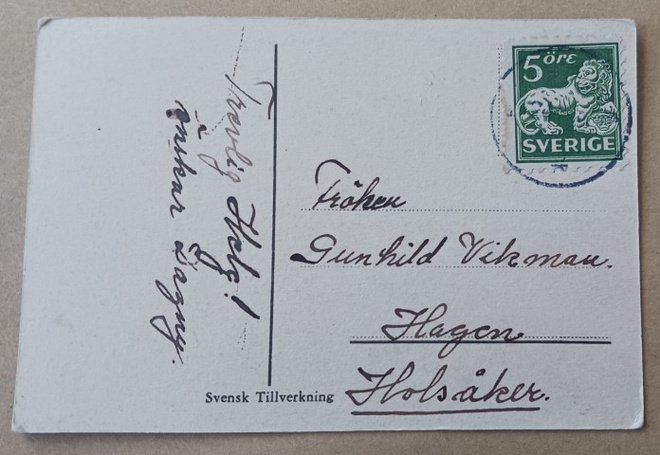 Trevlig Helg!
önskar Dagny.
5 öre
SVERIGE
Fröken
Gunhild Vikman.
Hagen
Holsåker.
Svensk Tillverkning